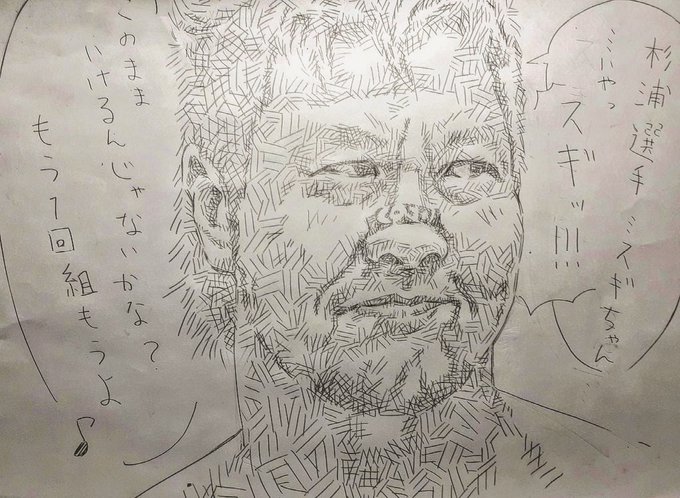 杉浦選手…スギちゃん
…いやっ
スギッ!!!
このまま
いけるんじゃないかな?
もう1回組もうよ♪